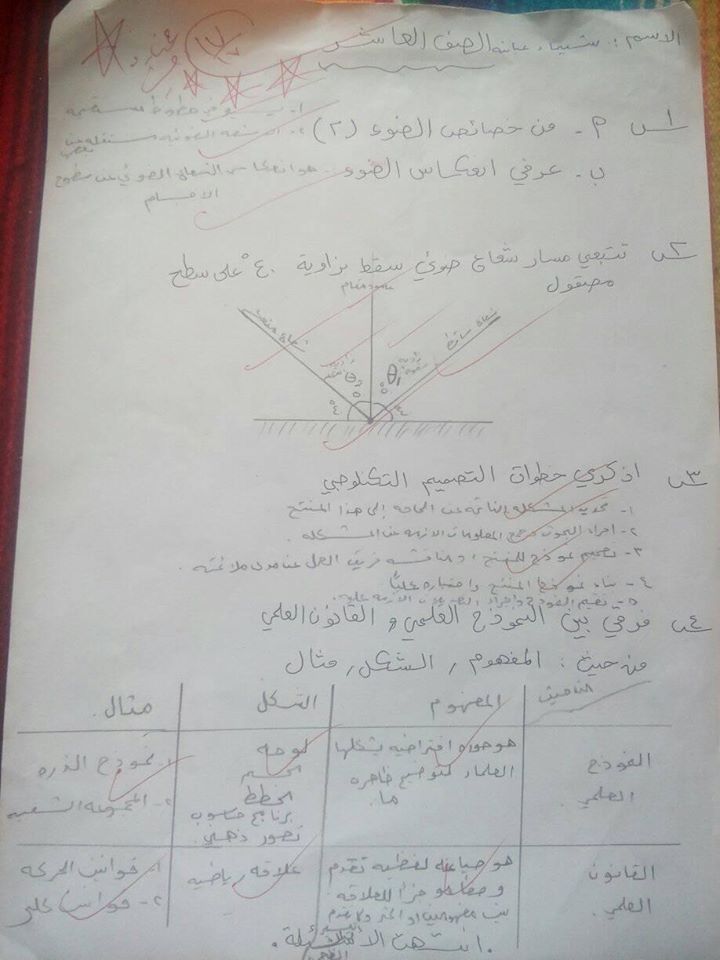 الاسم : شيماء الصف العاشر
س١ أ - من خصائص الضوء (٢)
١- يسير في خطوط مستقيمة
٢- الأشعة الضوئية مستقلة عن بعض
ب - عرفي انعكاس الضوء . هو انعكاس الشعاع الضوئي عن سطوح
الاجسام
س٢ تتبعي مسار شعاع ضوئي سقط بزاوية ٤٠° على سطح
مصقول
عمود مقام
شعاع منعكس
شعاع ساقط
زاوية θ2
زاوية θ1
س٣ اذكري خطوات التصميم التكنولوجي
١- تحديد المشكلة الناتجة عن الحاجة إلى هذا المنتج
٢- اجراء البحوث وجمع المعلومات الازمة عن المشكلة .
٣- تصميم نموذج للمنتج ومناقشة فريق العمل عن مدى ملائمته .
٤- بناء نموذج المنتج واختباره عمليًا
٥- تقييم النموذج واجراء التعديلات الازمة عليه .
س٤ فرقي بين النموذج العلمي و القانون العلمي
من حيث : المفهوم , الشكل , مثال
المفهوم الشكل مثال .
النموذج العلمي
هو صورة افتراضية يشكلها
العلماء لتوضيح ظاهرة
ما
لوحة
المخطط
برنامج حاسوب
تصور ذهني
١- نموذج الذرة
٢- المجموعة الشمسية
القانون العلمي .
هو صياغة لفظية تقدم
وصفا للعلاقة
بين مفهومين او اكثر
علاقة رياضية
١- قوانين الحركة
٢- قوانين كبلر
. انتهت الأسئلة .